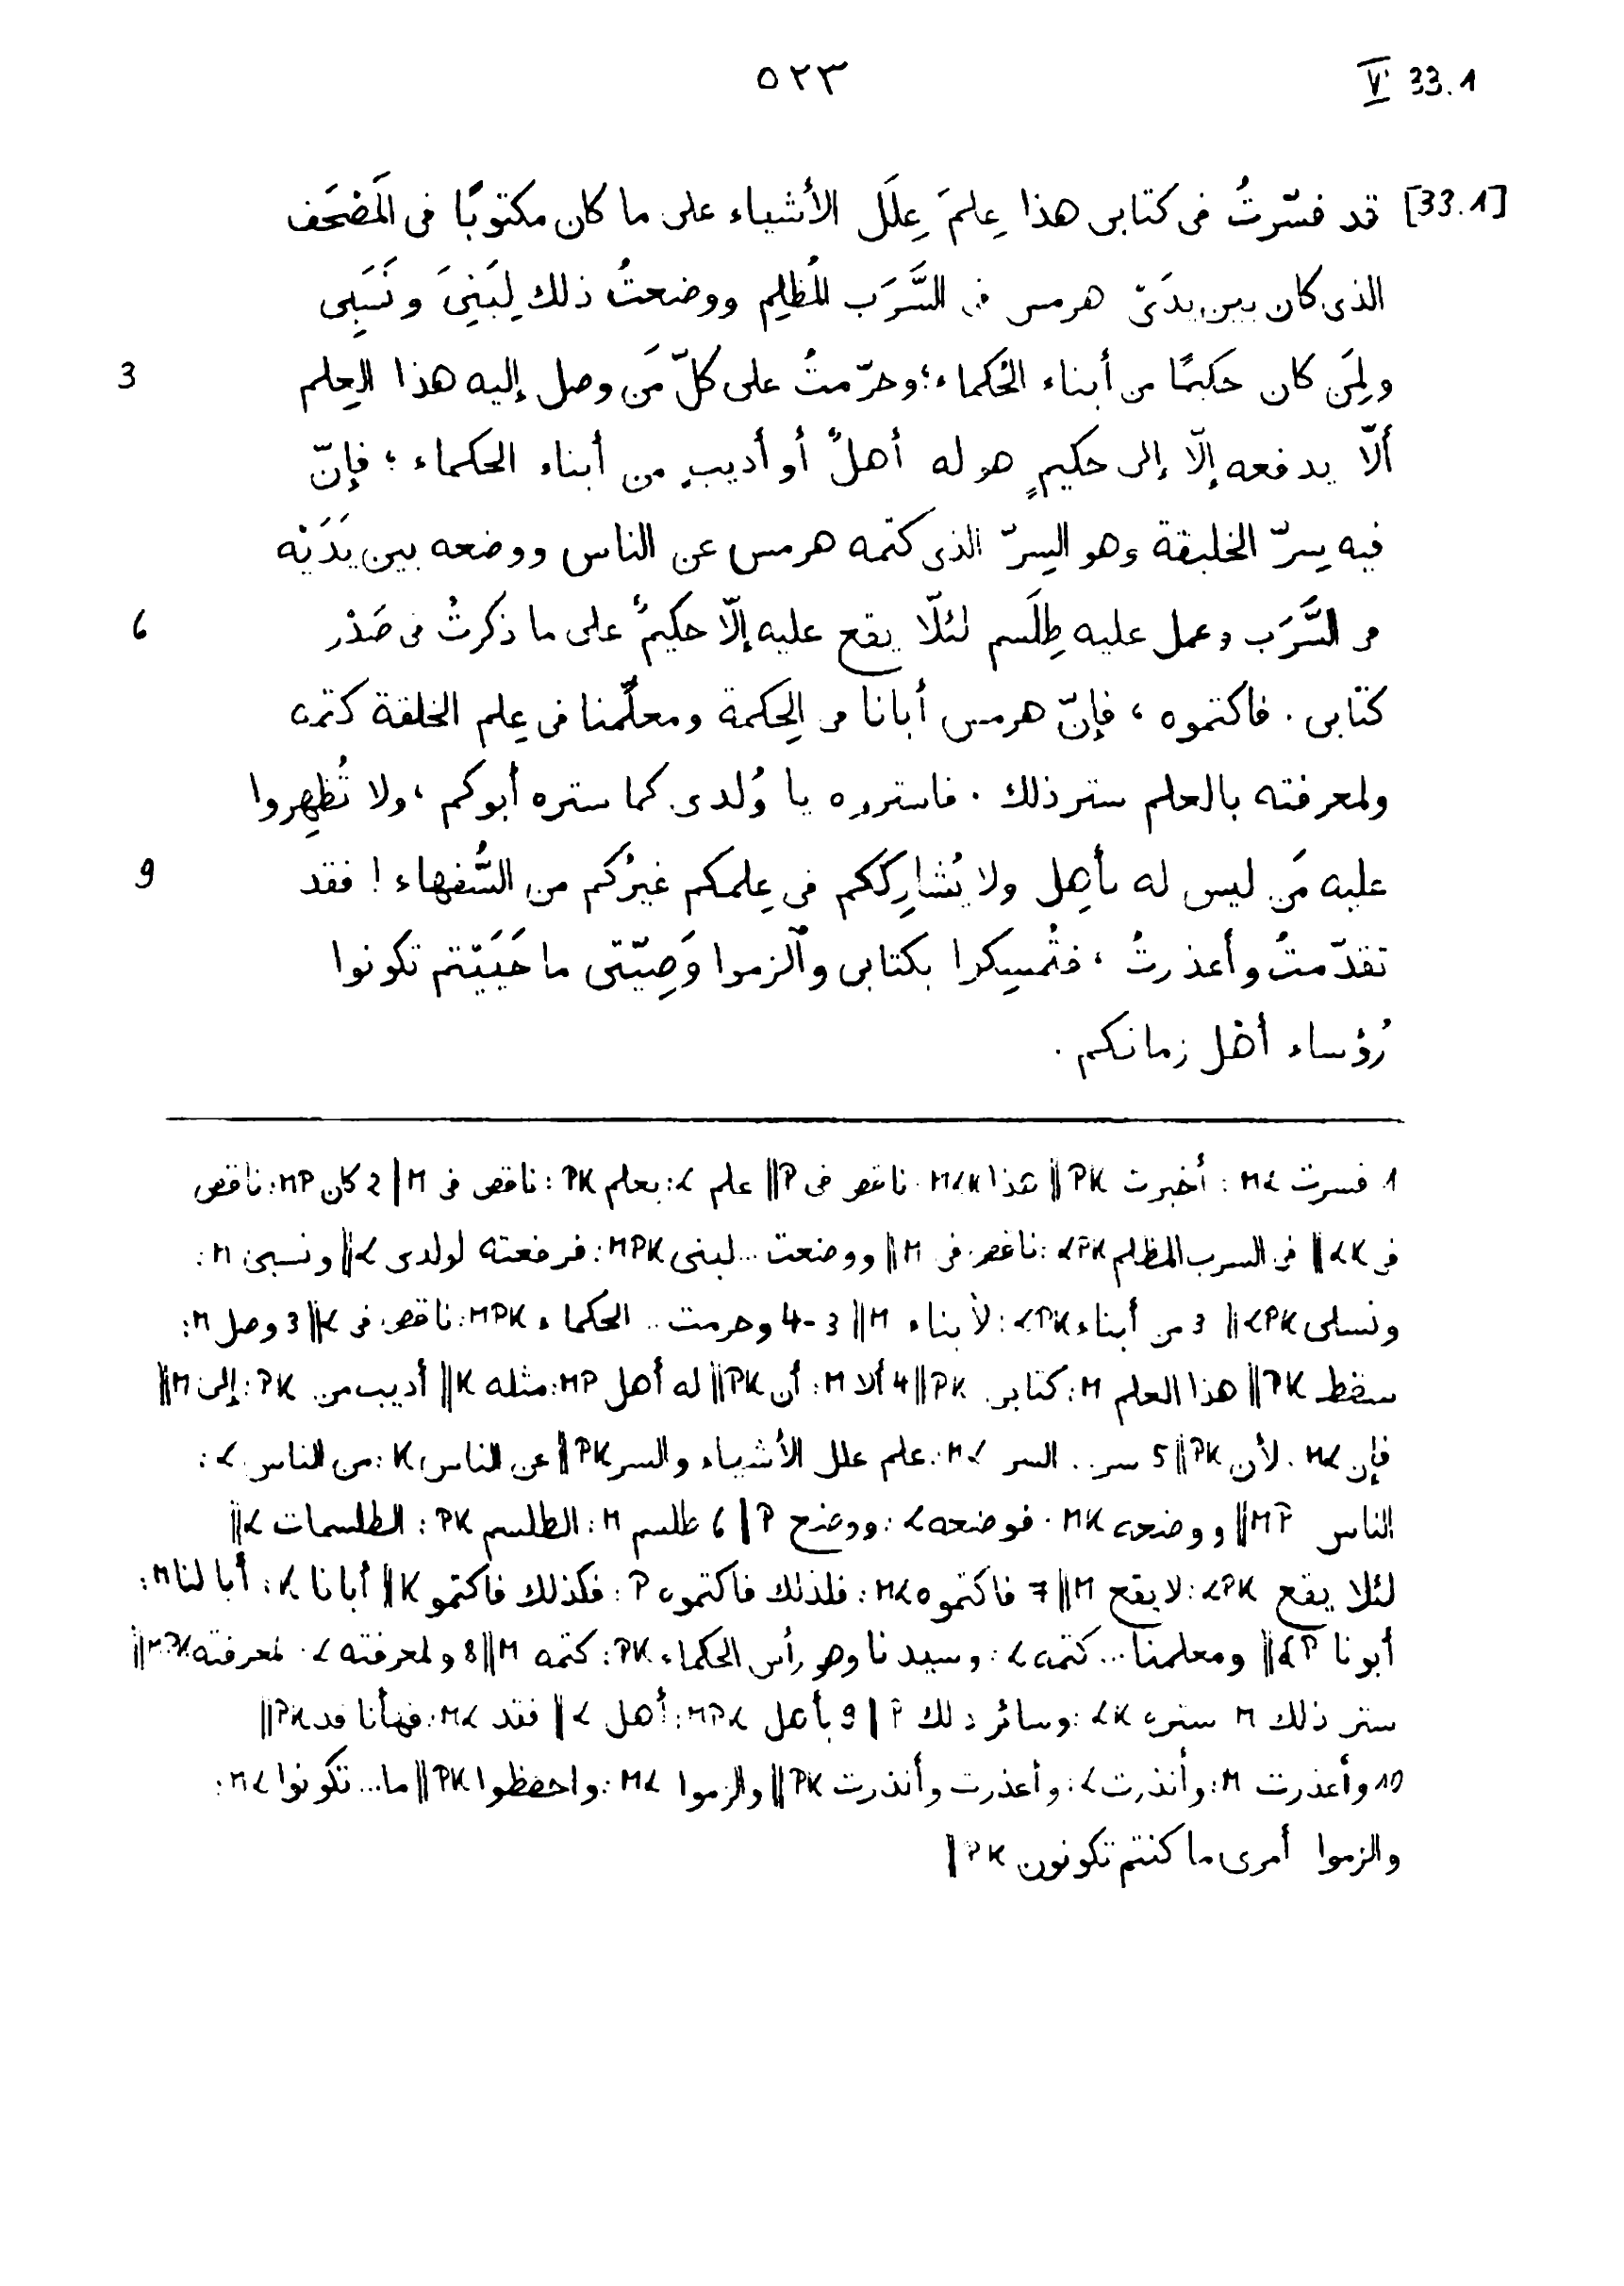 ٥٢٣ V 33.1
[33.1] قد فسّرتُ فى كتابى هذا عِلمَ عِلَل الأشياء على ما كان مكتوبًا فى المَصْحَف
الذى كان بين يدَىْ هرمس فى السَّرَب المُظلِم ووضعتُ ذلك لِبَنِىَ ونَسَبِى
3 ولِمَن كان حكيمًا من أبناء الحُكماء؛ وحرّمتُ على كلّ مَن وصل إليه هذا العِلم
ألّا يدفعه إلّا إلى حكيمٍ هو له أهلٌ أو أديبٍ من أبناء الحكماء؛ فإنّ
فيه سِرّ الخليقة وهو السِرّ الذى كتمه هرمس عن الناس ووضعه بين يَدَيْه
6 فى السَّرَب وعمل عليه طِلَسم لئلّا يقع عليه إلّا حكيمٌ على ما ذكرتُ فى صَدْر
كتابى. فاكتموه، فإنّ هرمس أبانا فى الحِكمة ومعلّمنا فى عِلم الخلقة كتمه
ولمعرفته بالعلم ستر ذلك. فاستروه يا وُلدى كما ستره أبوكم، ولا تُظهِروا
9 عليه مَن ليس له بأهِل ولا يُشارِككم فى عِلمكم غيرُكم من السُّفهاء! فقد
تقدّمتُ وأعذرتُ، فتُمسِكوا بكتابى وآلزموا وَصِيّتى ما حَيَيْتم تكونوا
رُؤساء أهْل زمانكم.
1 فسرت ML: أخبرت PK || هذا MLK: ناقص فى P || علم L: بعلم PK: ناقص فى M | 2 كان MP: ناقص
فى LK || فى السرب المظلم LPK: ناقص فى M || ووضعت ... لبنى MPK: فرفعته لولدى L || ونسبى M:
ونسلى LPK || 3 من أبناء LPK: لأبناء M || 3-4 وحرمت .. الحكماء MPK: ناقص فى L || 3 وصل M:
سقط PK || هذا العلم M: كتابى PK || 4 ألا M: أن PK || له أهل MP: مثله K || أديب من PK: إلى M ||
فإن ML: لأن PK || 5 سر .. السر ML: علم علل الأشياء والسر PK || عن الناس K: من الناس L:
الناس MP || ووضعه MK: فوضعه L: ووضح P | 6 طلسم M: الطلسم PK: الطلسمات L ||
لئلا يقع LPK: لا يقع M || 7 فاكتموه ML: فلذلك فاكتموه P: فكذلك فاكتمو K || أبانا K: أبا لنا M:
أبونا LP || ومعلمنا ... كتمه L: وسيدنا وهو رأس الحكماء PK: كتمه M || 8 ولمعرفته L: لمعرفته MPK ||
ستر ذلك M ستره LK: وسائر ذلك P | 9 بأهل MPL: أهل L || فقد ML: فهأنا قد PK ||
10 وأعذرت M: وأنذرت L: وأعذرت وأنذرت PK || والزموا ML: واحفظوا PK || ما ... تكونوا ML:
والزموا أمرى ما كنتم تكونون PK |